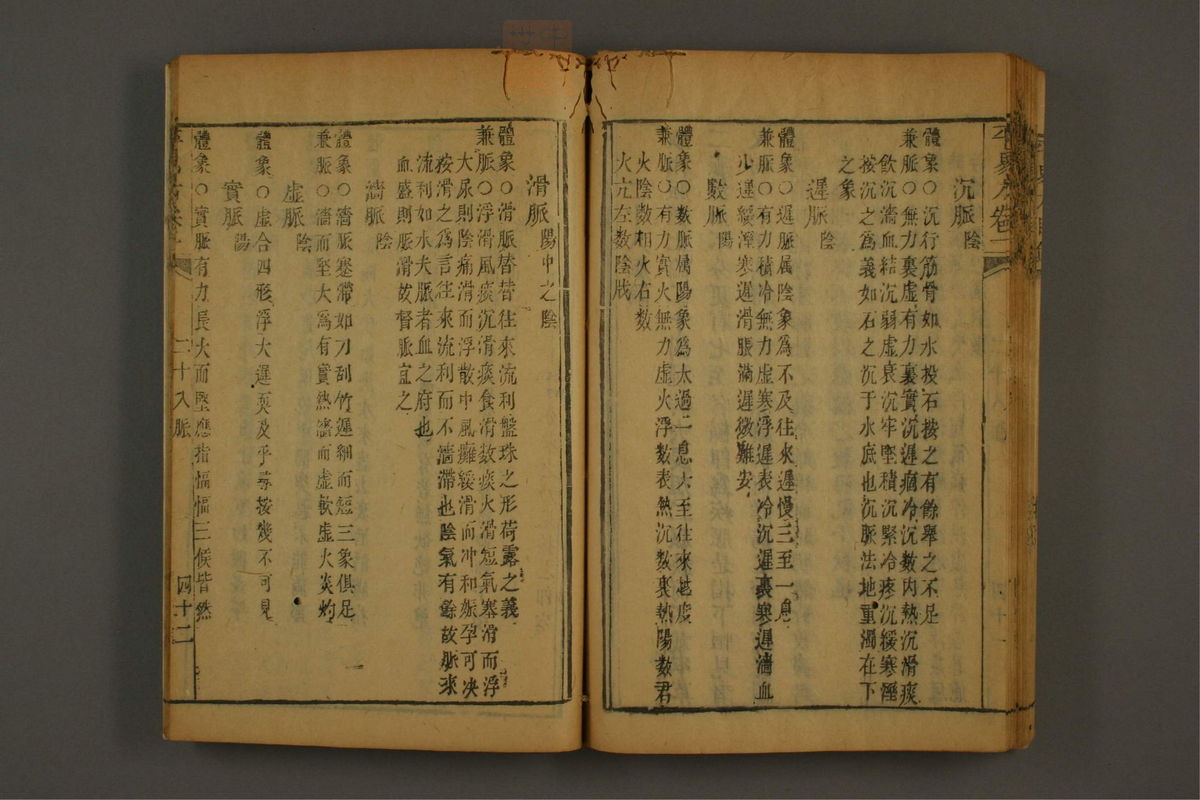 沉脈陰
體象○沉行筋骨如水投石按之有餘舉之不足
兼脈○無力裏虛有力裏實沉遲痼冷沉數內熱沉滑痰
飲沉濇血結沉弱虛衰沉牢堅積沉緊冷疼沉緩寒溼
按沉之爲義如石之沉于水底也沉脈法地重濁在下
之象
遲脈陰
體象○遲脈属陰象爲不及往來遲慢三至一息
兼脈○有力積冷無力虛寒浮遲表冷沉遲裏寒遲濇血
少遲緩溼寒遲滑脹滿遲微難安
數脈陽
體象○數脈属陽象爲太過一息六至往來越度
兼脈○有力實火無力虛火浮數表熱沉數裏熱陽數君
火陰數相火右數
火亢左數陰戕
滑脈陽中之陰
體象○滑脈替替往來流利盤珠之形荷露之義
兼脈○浮滑風痰沉滑痰食滑數痰火滑短氣塞滑而浮
大尿則陰痛滑而浮散中風癱緩滑而冲和娠孕可决
按滑之爲言往來流利而不濇滯也陰氣有餘故脈來
流利如水夫脈者血之府也
血盛則脈滑故腎脈宜之
濇脈陰
體象○濇脈蹇滯如刀刮竹遲細而短三象俱足
兼脈○濇而堅大爲有實熱濇而虛軟虛火炎灼
虛脈陰
體象○虛合四形浮大遲耎及乎尋按幾不可見
實脈陽
體象○實脈有力長大而堅應指愊愊三候皆然
二十八脈 四十二